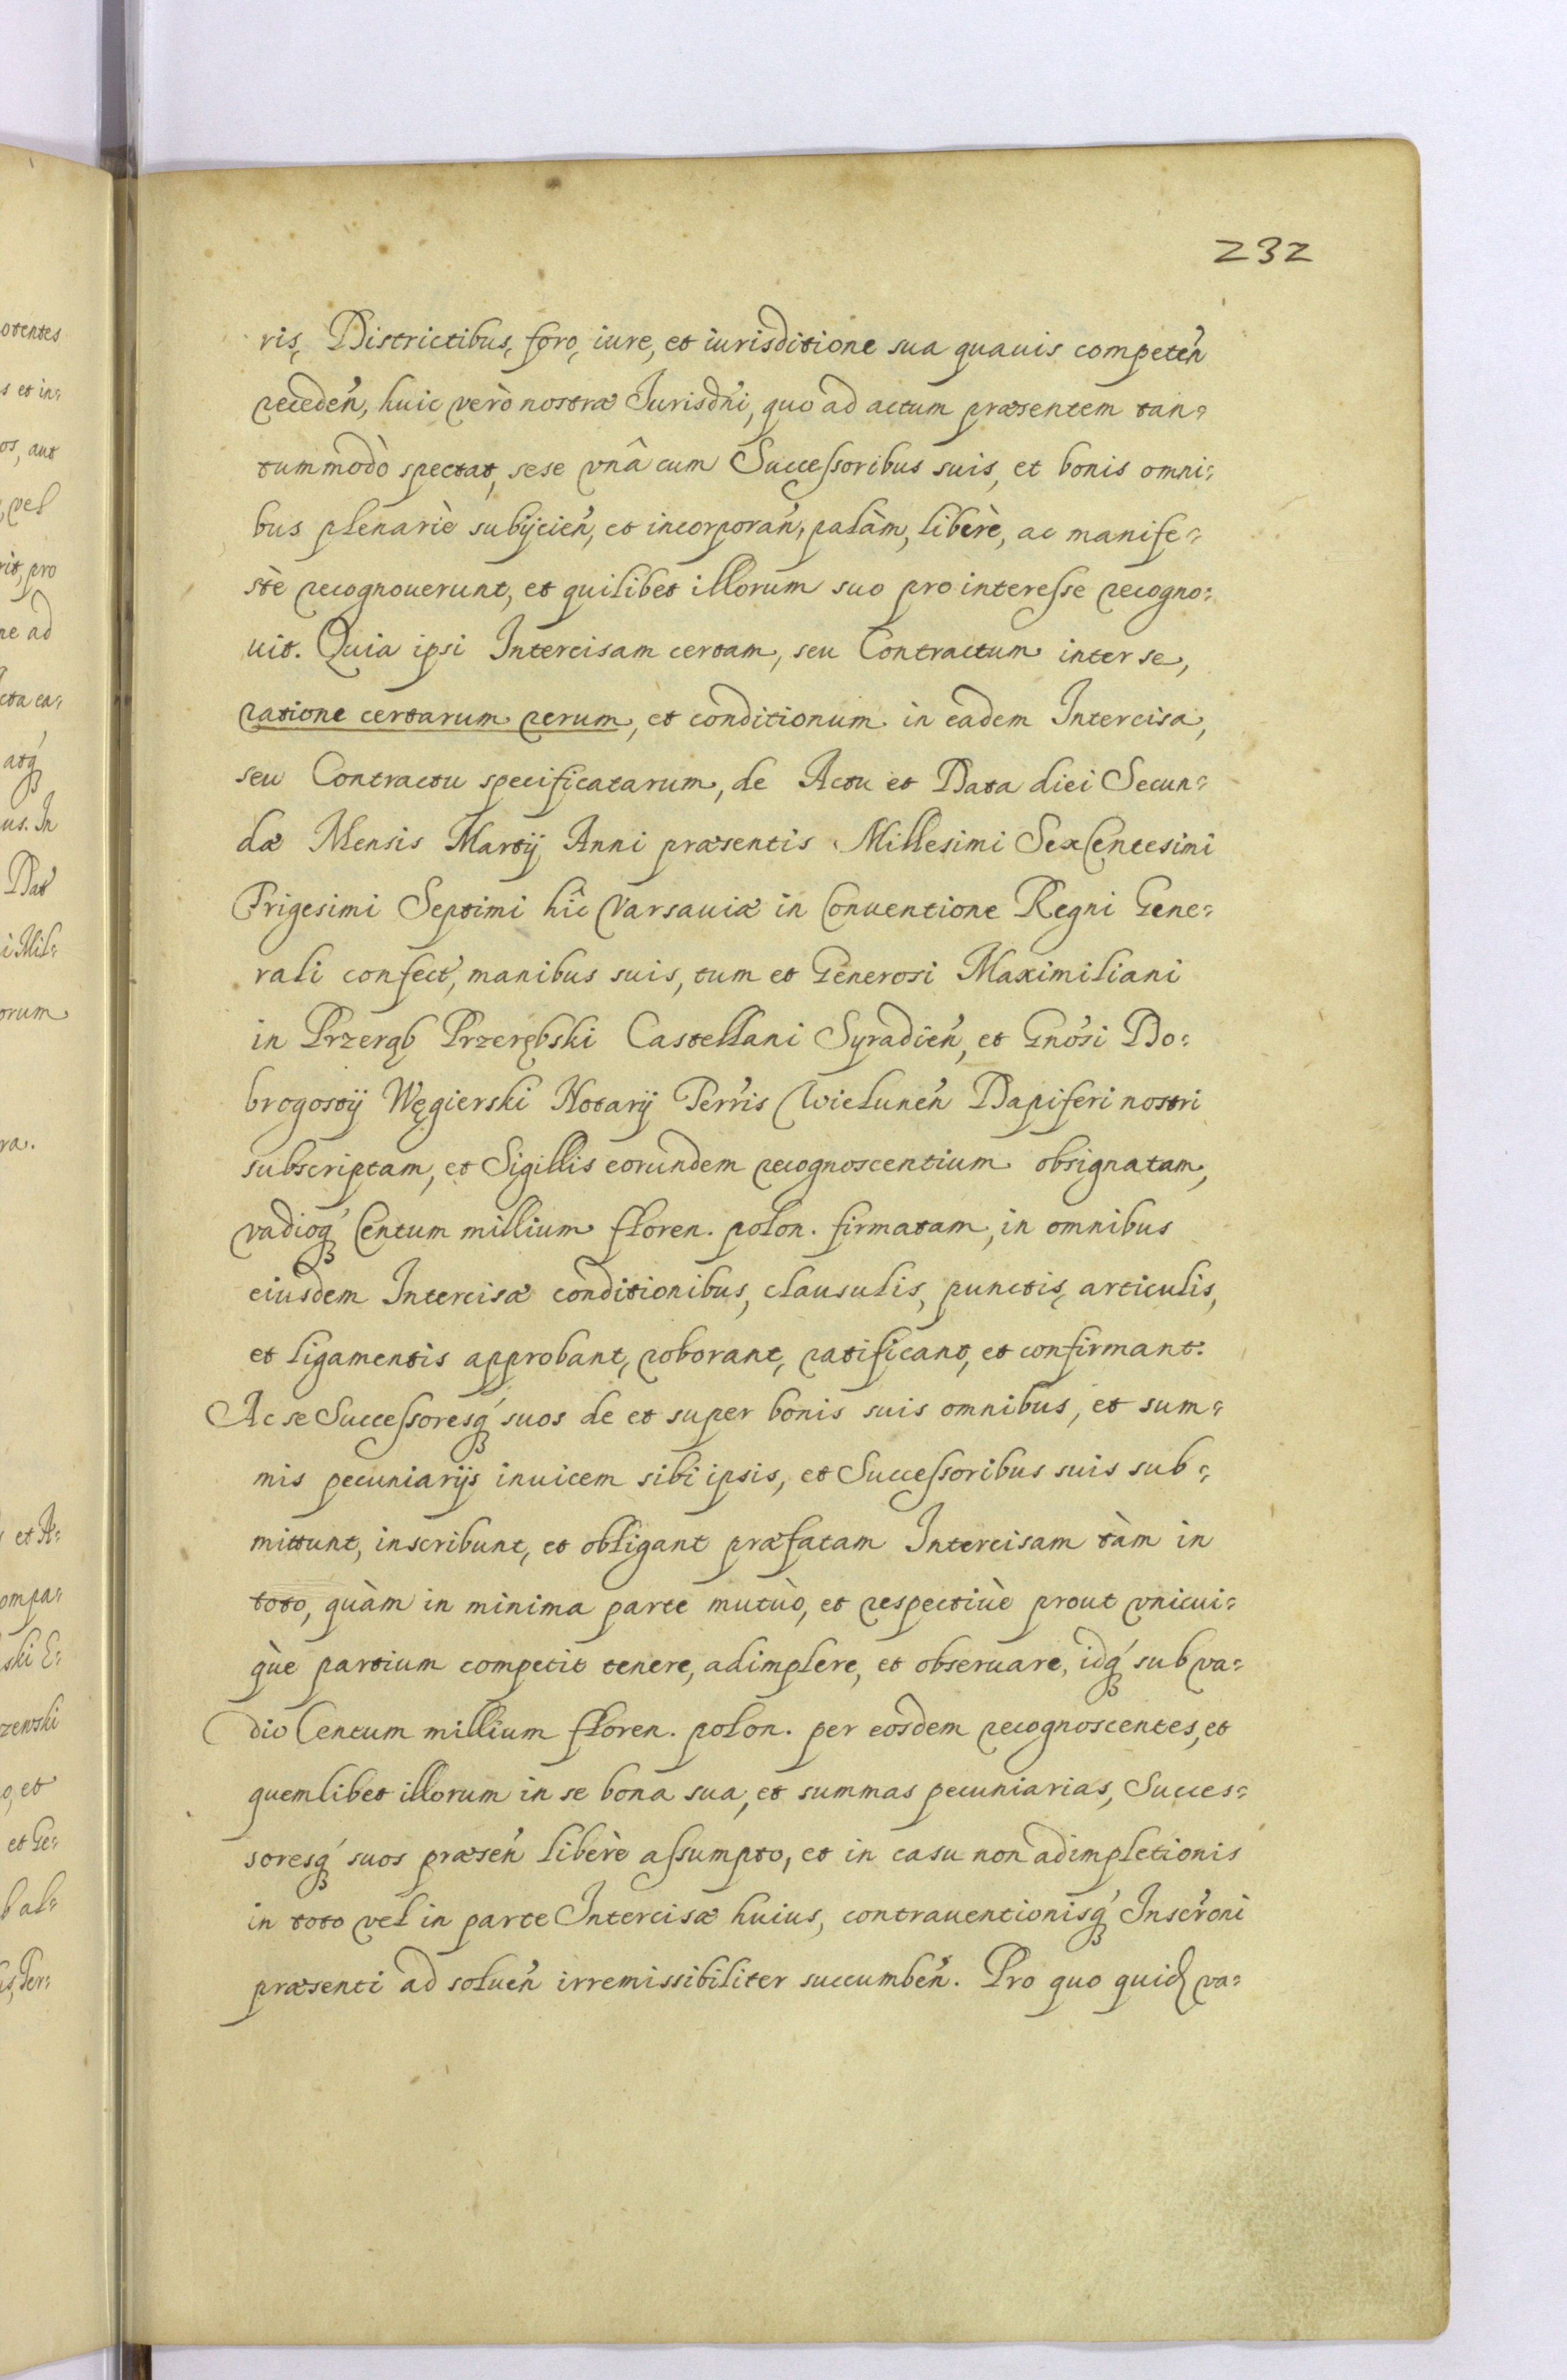 232
ris, Districtibus, foro, iure, et iurisditione sua quauis competen̄
receden̄, huic verò nostræ Jurisdn̄i, quo ad actum præsentem tan=
tummodò spectat, sese vnâ cum Successoribus suis, et bonis omni=
bus plenariè subijcien̄, et incorporan̄, palàm, liberè, ac manife=
stè recognouerunt, et quilibet illorum suo pro interesse recogno=
uit. Quia ipsi Intercisam certam, seu Contractum inter se,
ratione certarum rerum, et conditionum in eadem Intercisa,
seu Contractu specificatarum, de Actu et Data diei Secun=
dæ Mensis Martij Anni præsentis Millesimi SexCentesimi
Trigesimi Septimi hîc Varsauiæ in Conuentione Regni Gene=
rali confect, manibus suis, tum et Generosi Maximiliani
in Przerąb Przerębski Castellani Syradien̄, et Gnōsi Do=
brogostij Węgierski Notarij Terrīs Wielunen̄ Dapiferi nostri
subscriptam, et Sigillis eorundem recognoscentium obsignatam,
vadioq́ Centum millium floren. polon. firmatam, in omnibus
eiusdem Intercisæ conditionibus, clausulis, punctis, articulis,
et ligamentis approbant, roborant, ratificant, et confirmant.
Ac se Successoresq́ suos de et super bonis suis omnibus, et sum=
mis pecuniarijs inuicem sibi ipsis, et Successoribus suis sub=
mittunt, inscribunt, et obligant præfatam Intercisam tàm in
toto, quàm in minima parte mutùo, et respectiuè prout vnicui=
què partium competit tenere, adimplere, et obseruare, idq́ sub va=
dio Centum millium floren. polon. per eosdem recognoscentes, et
quemlibet illorum in se bona sua, et summas pecuniarias, Succes=
soresq́ suos præsen̄ liberè assumpto, et in casu non adimpletionis
in toto vel in parte Intercisæ huius, contrauentionisq́ Inscrōni
præsenti ad soluen̄ irremissibiliter succumben̄. Pro quo quid va=